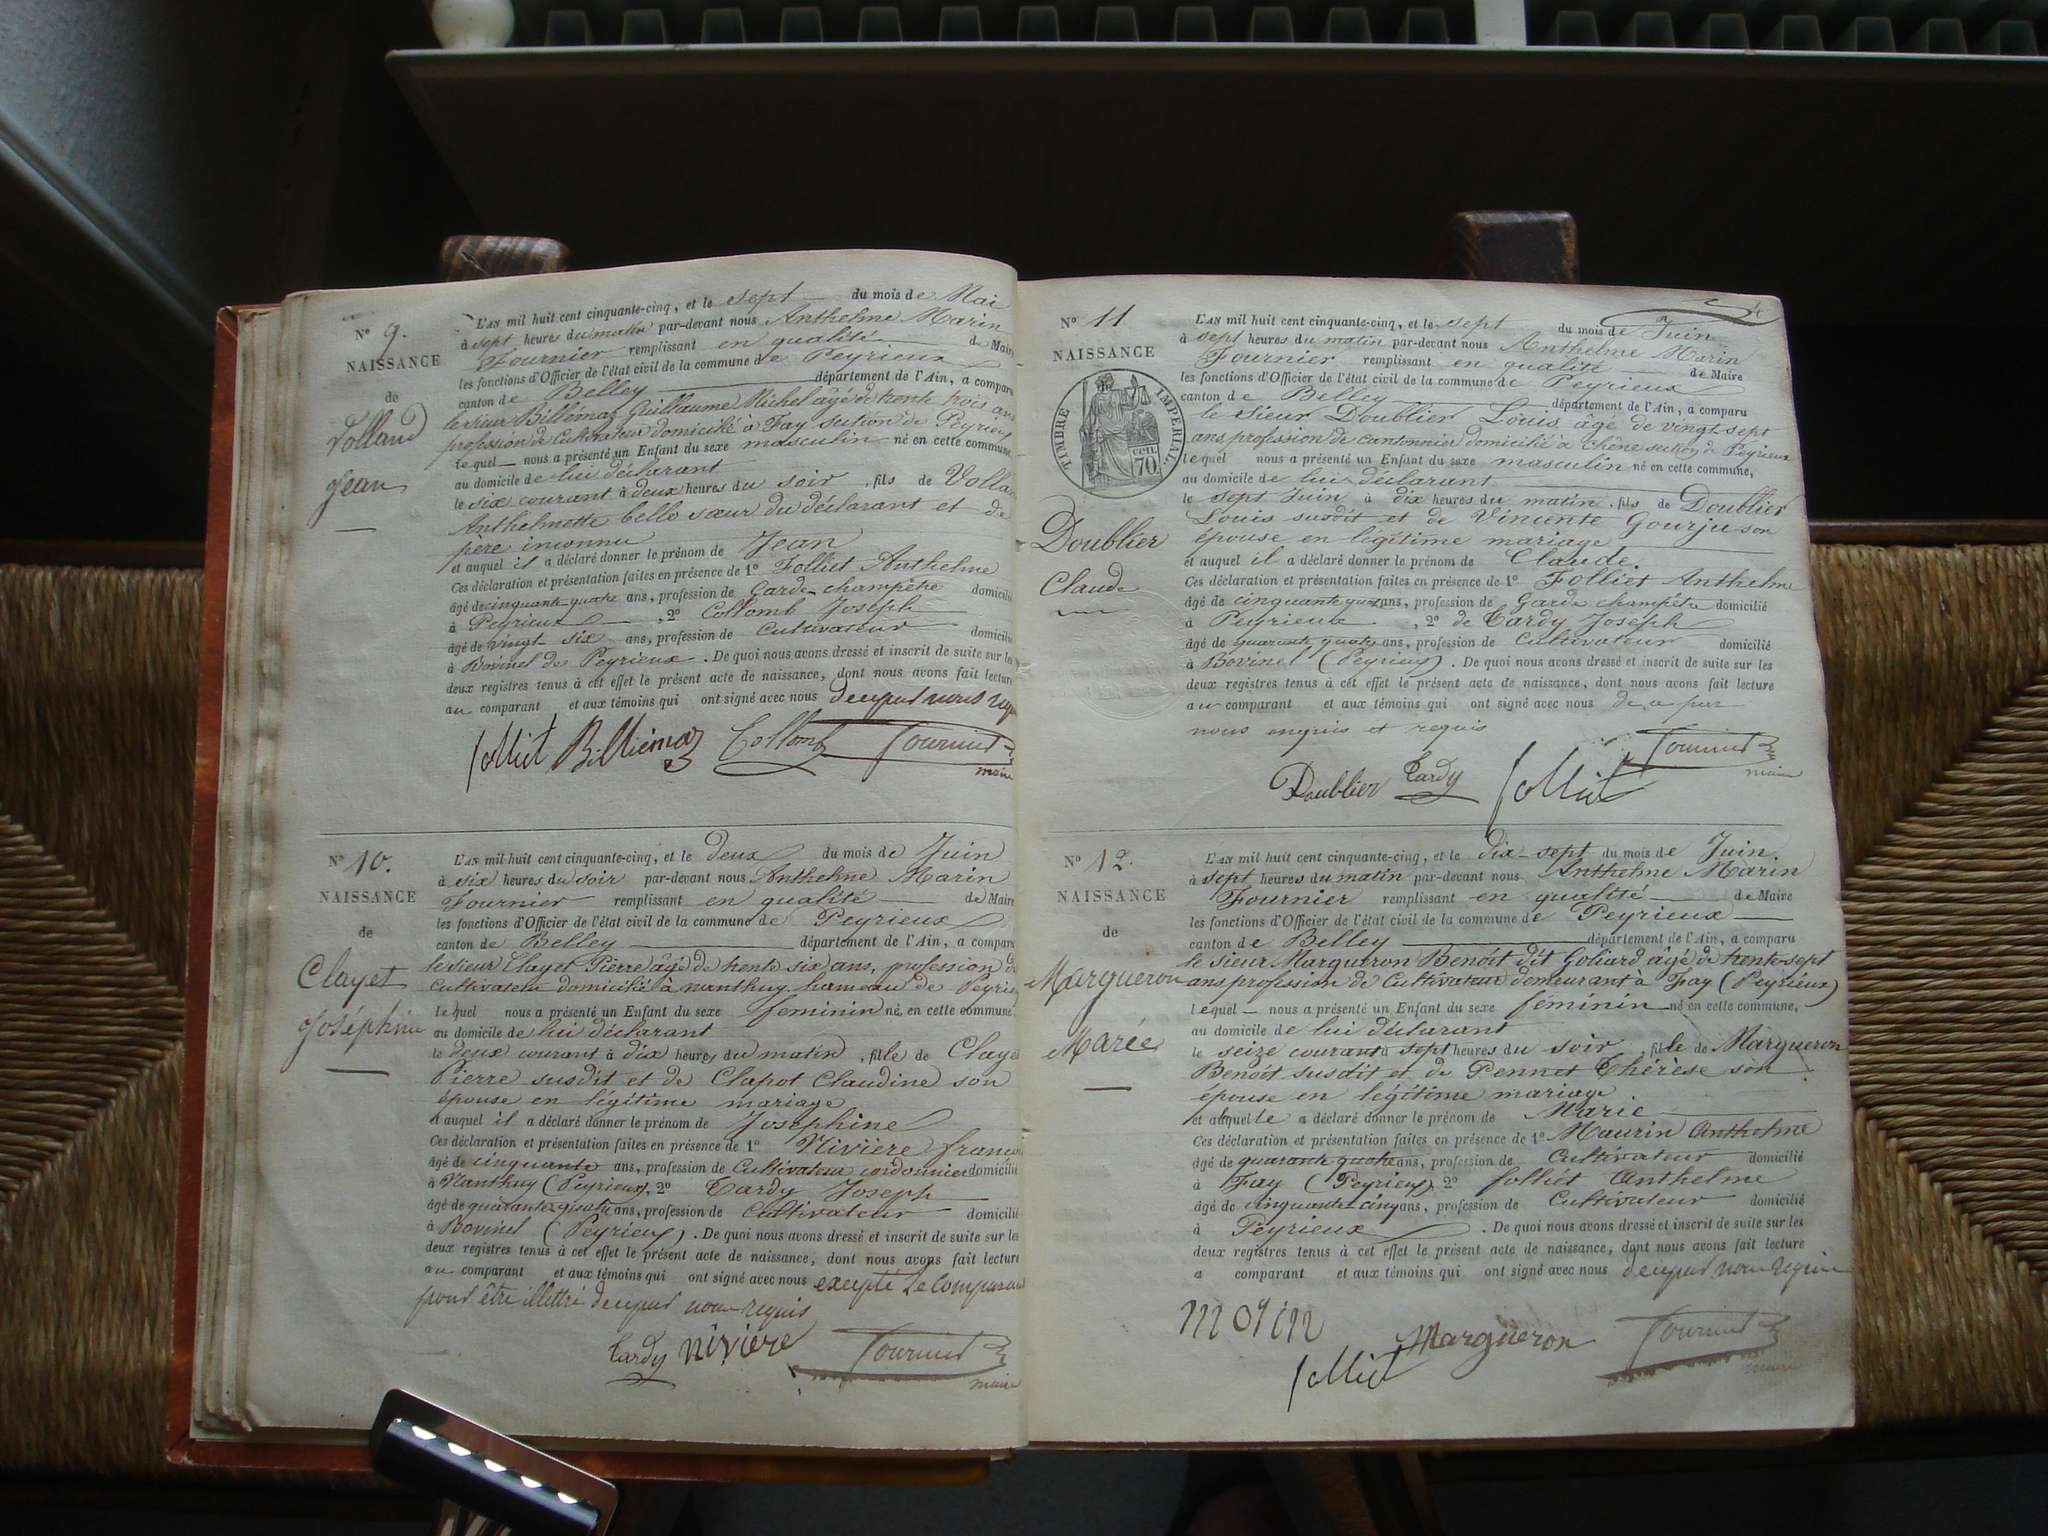 N° 9.
NAISSANCE
de
Volland
Jean
L'AN mil huit cent cinquante-cinq, et le sept du mois de Mai
à sept heures du matin par-devant nous Anthelme Marin
Fournier remplissant en qualité de Maire
les fonctions d'Officier de l'état civil de la commune de Peyrieux
canton de Belley département de l'Ain, a comparu
le sieur Billiémaz Guillaume Michel âgé de trente trois ans
profession de Cultivateur domicilié à Fay section de Peyrieux
lequel nous a présenté un Enfant du sexe masculin né en cette commune,
au domicile de lui déclarant
le six courant à deux heures du soir, fils de Volland
Anthelmette belle sœur du déclarant et de
père inconnu
et auquel il a déclaré donner le prénom de Jean
Ces déclaration et présentation faites en présence de 1° Folliet Anthelme
âgé de cinquante quatre ans, profession de Garde champêtre domicilié
à Peyrieux, 2° Collomb Joseph
âgé de vingt six ans, profession de Cultivateur domicilié
à Bovinel de Peyrieux. De quoi nous avons dressé et inscrit de suite sur les
deux registres tenus à cet effet le présent acte de naissance, dont nous avons fait lecture
au comparant et aux témoins qui ont signé avec nous de ce par nous requis
folliet Billiémaz Collomb Fournier
maire
N° 10.
NAISSANCE
de
Clayet
Joséphine
L'AN mil huit cent cinquante-cinq, et le deux du mois de Juin
à six heures du soir par-devant nous Anthelme Marin
Fournier remplissant en qualité de Maire
les fonctions d'Officier de l'état civil de la commune de Peyrieux
canton de Belley département de l'Ain, a comparu
le sieur Clayet Pierre âgé de trente six ans, profession de
cultivateur domicilié à nanthuy hameau de Peyrieux
lequel nous a présenté un Enfant du sexe féminin né, en cette commune
au domicile de lui déclarant
le deux courant à dix heures du matin, fille de Clayet
Pierre susdit et de Clapot Claudine son
épouse en légitime mariage
et auquel il a déclaré donner le prénom de Joséphine
Ces déclaration et présentation faites en présence de 1° Nivière françois
âgé de cinquante ans, profession de Cultivateur cordonnier domicilié
à Nanthuy (Peyrieux), 2° Tardy Joseph
âgé de quarante quatre ans, profession de Cultivateur domicilié
à Bovinel (Peyrieux). De quoi nous avons dressé et inscrit de suite sur les
deux registres tenus à cet effet le présent acte de naissance, dont nous avons fait lecture
au comparant et aux témoins qui ont signé avec nous excepté le Comparant
pour être illettré de ce par nous requis
Tardy nivière Fournier
maire
N° 11
NAISSANCE
de
TIMBRE IMPERIAL.
70 cen.
Doublier
Claude
L'AN mil huit cent cinquante-cinq, et le sept du mois de Juin
à sept heures du matin par-devant nous Anthelme Marin
Fournier remplissant en qualité de Maire
les fonctions d'Officier de l'état civil de la commune de Peyrieux
canton de Belley département de l'Ain, a comparu
le sieur Doublier Louis âgé de vingt sept
ans profession de cantonnier domicilié à Chêne section de Peyrieux
lequel nous a présenté un Enfant du sexe masculin né en cette commune,
au domicile de lui déclarant
le sept Juin à dix heures du matin, fils de Doublier
Louis susdit et de Vincente Gourju son
épouse en légitime mariage
et auquel il a déclaré donner le prénom de Claude.
Ces déclaration et présentation faites en présence de 1° Folliet Anthelme
âgé de cinquante quatre ans, profession de Garde champêtre domicilié
à Peyrieux, 2° de Tardy Joseph
âgé de quarante quatre ans, profession de Cultivateur domicilié
à Bovinel (Peyrieux). De quoi nous avons dressé et inscrit de suite sur les
deux registres tenus à cet effet le présent acte de naissance, dont nous avons fait lecture
au comparant et aux témoins qui ont signé avec nous de ce par
nous enquis et requis
Doublier Tardy folliet Fournier
maire
N° 12.
NAISSANCE
de
Margueron
Marie
L'AN mil huit cent cinquante-cinq, et le dix-sept du mois de Juin.
à sept heures du matin par-devant nous Anthelme Marin
Fournier remplissant en qualité de Maire
les fonctions d'Officier de l'état civil de la commune de Peyrieux
canton de Belley département de l'Ain, a comparu
le sieur Margueron Benoît dit Goliard âgé de trente-sept
ans profession de Cultivateur demeurant à Fay (Peyrieux)
lequel nous a présenté un Enfant du sexe féminin né en cette commune,
au domicile de lui déclarant
le seize courant à sept heures du soir, fille de Margueron
Benoît susdit et de Pennet Thérèse son
épouse en légitime mariage
et auquel le a déclaré donner le prénom de Marie
Ces déclaration et présentation faites en présence de 1° Maurin Anthelme
âgé de quarante quatre ans, profession de Cultivateur domicilié
à Fay (Peyrieux) 2° folliet Anthelme
âgé de cinquante cinq ans, profession de Cultivateur domicilié
à Peyrieux. De quoi nous avons dressé et inscrit de suite sur les
deux registres tenus à cet effet le présent acte de naissance, dont nous avons fait lecture
a comparant et aux témoins qui ont signé avec nous de ce par nous requis
morin Margueron Fournier
folliet maire